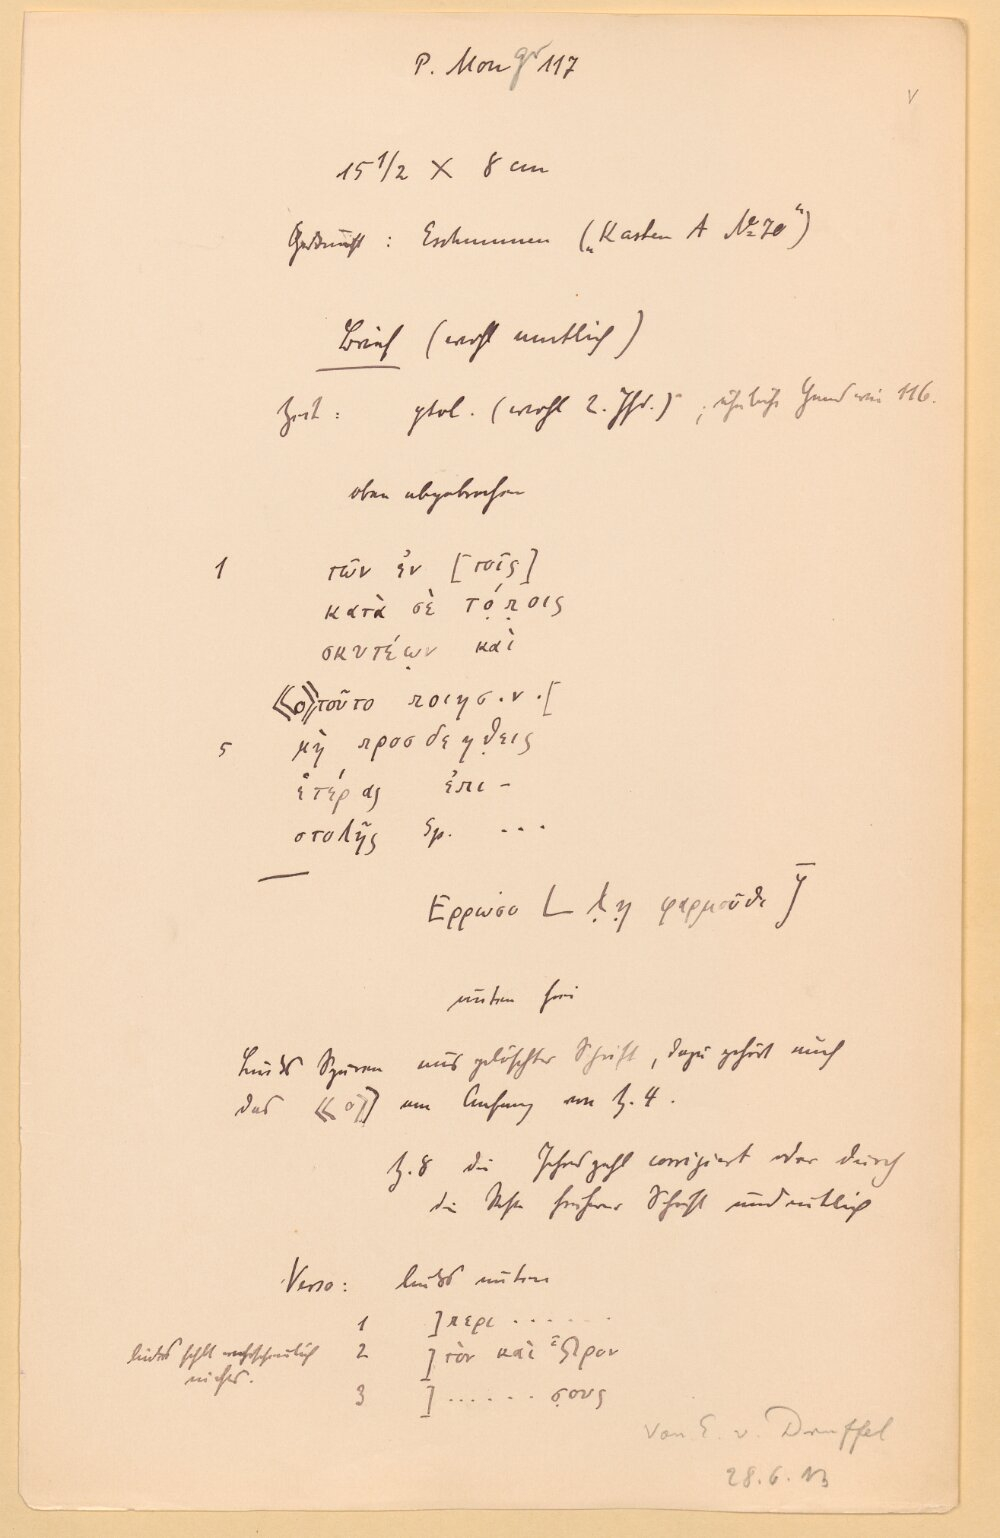 P. Mon gr 117
V
15 1/2 × 8 cm
Herkunft : Eschmunen („Kasten A № 70“)
Brief (wohl amtlich)
Zeit : ptol. (wohl 2. Jhd.) ; ähnliche Hand wie 116.
oben abgebrochen
1 τῶν ἐν [τοῖς]
κατὰ σὲ τό̣π̣οις
σκυτέω̣ν καὶ
⟪ο⟫τοῦτο ποιησ.ν.[
5 μὴ προσδεηθ̣εις
ἑτέρας ἐπι-
στολῆς Sp. ...
Ἔρρωσο L λ̣η̣ φαρμοῦθι γ̅
unten frei
Links Spuren ausgelöschter Schrift, dazu gehört auch
das ⟦ο⟧ am Anfang von Z. 4.
Z. 8 die Jahreszahl corrigiert oder durch
die Reste früherer Schrift undeutlich
Verso: links unten
1 ]περι ......
2 ]τὸν καὶ
3 ]...... σ̣ους
links fehlt wahrscheinlich
nichts.
von E. v. Druffel
28.6.13